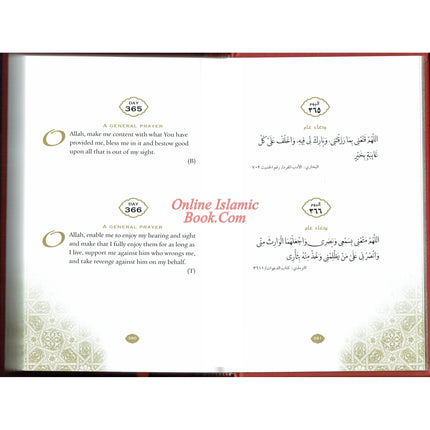 DAY
365
A GENERAL PRAYER
O Allah, make me content with what You have
provided me, bless me in it and bestow good
upon all that is out of my sight.
(B)
DAY
366
A GENERAL PRAYER
O Allah, enable me to enjoy my hearing and sight
and make that I fully enjoy them for as long as
I live, support me against him who wrongs me,
and take revenge against him on my behalf.
(T)
Online Islamic
Book.Com
اليوم
٣٦٥
دعاء عام
اللّهُمَّ قَنِّعْنِي بِمَا رَزَقْتَنِي، وَبَارِكْ لِي فِيهِ، وَاخْلُفْ عَلَى كُلِّ
غَائِبَةٍ بِخَيْرٍ
اليوم
٣٦٦
دعاء عام
اللّهُمَّ مَتِّعْنِي بِسَمْعِي وَبَصَرِي وَاجْعَلْهُمَا الْوَارِثَ مِنِّي
وَانْصُرْنِي عَلَى مَنْ يَظْلِمُنِي وَخُذْ مِنْهُ بِثَأْرِي